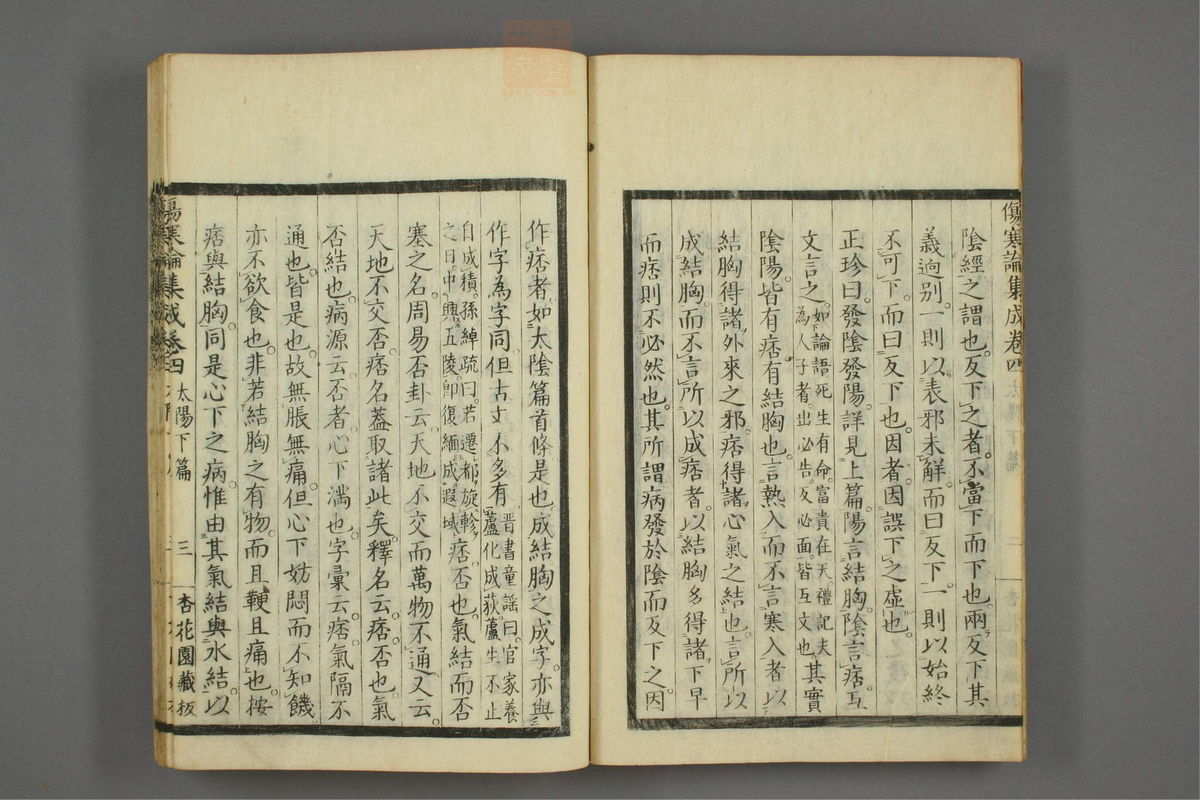 傷寒論集成卷四
陰經之謂也反下之者不當下而下也兩反下其
義逈别一則以表邪未解而曰反下一則以始終
不可下而曰反下也因者因誤下之虛也
正珍曰發陰發陽詳見上篇陽言結胸陰言痞互
文言之如論語死生有命富貴在天禮記夫
為人子者出必告反必面皆互文也其實
陰陽皆有痞有結胸也言熱入而不言寒入者以
結胸得諸外來之邪痞得諸心氣之結也言所以
成結胸而不言所以成痞者以結胸多得諸下早
而痞則不必然也其所謂病發於陰而反下之因
作痞者如太陰篇首條是也成結胸之成字亦與
作字為字同但古文不多有晋書童謡曰官家養
蘆化成荻蘆生不止
自成積孫綽疏曰若遷都旋軫
之日中興五陵卽復緬成遐域痞否也氣結而否
塞之名周易否卦云天地不交而萬物不通又云
天地不交否痞名蓋取諸此矣釋名云痞否也氣
否結也病源云否者心下滿也字彙云痞氣隔不
通也皆是也故無脹無痛但心下妨悶而不知饑
亦不欲食也非若結胸之有物而且鞕且痛也桉
痞與結胸同是心下之病惟由其氣結與水結以
傷寒論集成卷四 太陽下篇 三 杏花園藏板